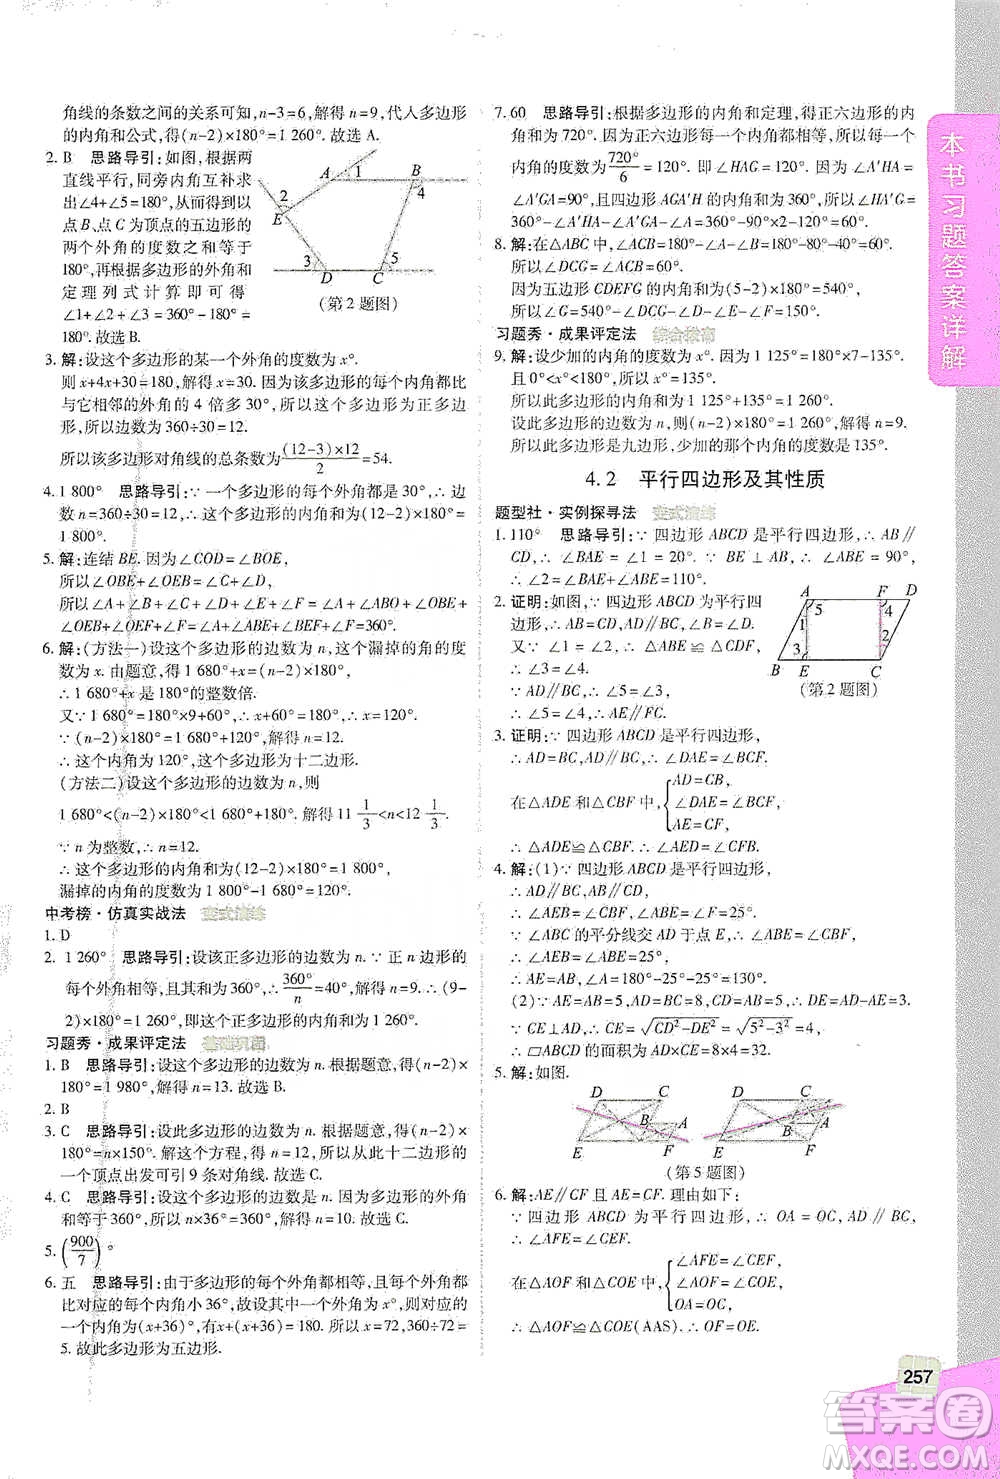 角线的条数之间的关系可知,n-3=6,解得 n=9,代人多边形
的内角和公式,得(n-2)×180°=1 260°.故选 A.
2. B 思路导引:如图,根据两
直线平行,同旁内角互补求
出∠4+∠5=180°,从而得到以
点 B、点 C 为顶点的五边形的
两个外角的度数之和等于
180°,再根据多边形的外角和
定理列式计算即可得解
∠1+∠2+∠3=360°-180°
=180°.故选 B.
A 1 B 4 2 E 3 5 D C
(第 2 题图)
3. 解:设这个多边形的某一个外角的度数为 x°.
则 x+4x+30=180,解得 x=30.所以该多边形的每个内角都比
与它相邻的外角的 4 倍多 30°,所以这个多边形为正多边
形,所以边数为 360÷30=12.
所以该多边形对角线的总条数为(12-3)×12/2=54.
4. 1 800° 思路导引:∵一个多边形的每个外角都是 30°,∴
n=360÷30=12,则这个多边形的内角和为(12-2)×180°=
1 800°.
5. 解:连结 BE. 因为∠COD=∠BOE,
所以∠OBE+∠OEB=∠C+∠D,
所以∠A+∠B+∠C+∠D+∠E+∠F=∠A+∠ABO+∠OBE+
∠OEB+∠OEF+∠F=∠A+∠ABE+∠BEF+∠F=360°.
6. 解:(方法一)设这个多边形的边数为 n,这个漏掉的角的度
数为 x. 由题意,得 1 680°+x=(n-2)×180°,
∴1 680°+x 是 180°的整数倍.
又∵1 680°=180°×9+60°,∴x+60°=180°,∴x=120°.
∵(n-2)×180°=1 680°+120°,解得 n=12.
∴这个内角为 120°,这个多边形为十二边形.
(方法二)设这个多边形的边数为 n,则
1 680°<(n-2)×180°<1 680°+180°.解得 11 1/3<n<12 1/3.
∵n 为整数,∴n=12.
∴这个多边形的内角和为(12-2)×180°=1 800°,
漏掉的内角的度数为 1 800°-1 680°=120°.
中考榜·仿真实战法 变式演练
1. D
2. 1 260° 思路导引:设该正多边形的边数为 n.∵正 n 边形
的外角相等,且其和为 360°,∴360°/n=40°,解得 n=9,∴(9-
2)×180°=1 260°,即这个正多边形的内角和为 1 260°.
习题秀·成果评定法 基础巩固
1. B 思路导引:设这个多边形的边数为 n. 根据题意,得(n-2)×
180°=1 980°,解得 n=13.故选 B.
2. B
3. C 思路导引:设此多边形的边数为 n.根据题意,得(n-2)×
180°=n×150°.解这个方程,得 n=12,所以从此十二边形的
一个顶点出发可引 9 条对角线.故选 C.
4. C 思路导引:设这个多边形的边数为 n. ∵多边形的外角
和等于 360°,所以 n×36°=360°,解得 n=10.故选 C.
5. (900/7)°
6. 五 思路导引:由于多边形的每个外角都相等,且每个外角
比对应的每个内角小 36°,故设其中一个外角为 x°,则相邻
的一个内角为(x+36)°,有 x+(x+36)=180. 所以 x=72,360÷72=
5. 故此多边形为五边形.
7. 60 思路导引:根据多边形的内角和定理,可得正六边形的内
角和为 720°.因为正六边形的每一个内角都相等,所以每个
内角的度数为720°/6=120°,即∠HAG=120°. 又∠A'HA=
∠A'GA=90°,且四边形 AGA'H 的内角和为 360°,所以∠GA'H=
360°-∠A'HA-∠A'GA-∠HAG=360°-2×90°-120°=60°.
8. 解:在△ABC 中,∠ACB=180°-∠A-∠B=180°-50°-50°=80°,
所以∠DCG=∠ACB=80°.
因为五边形 CDEFG 的内角和=(5-2)×180°=540°,
所以∠CDE+∠E+∠F+∠FGC=540°-80°=460°.
习题秀·成果评定法 综合教育
9. 解:设少加的内角的度数为 x°. 因为 1 125°=180°×7-135°,
且 0°<x°<180°,所以 x°=135°.
所以此多边形的内角和为 1 125°+135°=1 260°.
设此多边形的边数为 n,则(n-2)×180°=1 260°.解得 n=9.
所以此多边形是九边形,少加的那个内角的度数是 135°.
4.2 平行四边形及其性质
题型社·实例探寻法 变式演练
1. 110° 思路导引:∵四边形 ABCD 是平行四边形,∴AB∥
CD,∴∠BAE=∠1=20°.∵BE⊥AB,∴∠ABE=90°,
∴∠2=∠BAE+∠ABE=110°.
2. 证明:如图,∵四边形 ABCD 为平行四边
形,∴AB=CD,∠B=∠D.
又∵∠1=∠2,∴△ABE≌△CDF,
∴∠3=∠4.
∵AD∥BC,∴∠3=∠5,
∴∠5=∠4,∴AE∥FC.
A F D 5 4 1 2 3 B E C
(第 2 题图)
3. 证明:∵四边形 ABCD 是平行四边形,
∴AD=CB,AD∥BC,∴∠DAE=∠BCF.
在△ADE 和△CBF 中,{AD=CB,
∠DAE=∠BCF,
AE=CF,
∴△ADE≌△CBF. ∴∠AED=∠CFB.
4. 解:(1)∵四边形 ABCD 是平行四边形,
∴∠AEB=∠EBF,∠B=∠D=50°.
∵∠ABC 的平分线交 AD 于点 E,∴∠ABE=∠EBF=25°,
∴∠AEB=∠ABE=25°.
∴AE=AB.
(2)∵AE=AB=5,AD=BC=8,CD=AB=5,∴DE=AD-AE=3.
∵CE⊥AD,∴CE=√(CD²-DE²)=√(5²-3²)=4,
∴▱ABCD 的面积=AD×CE=8×4=32.
5. 解:如图.
D C B A E F D C B A E F
(第 5 题图)
6. 解:AE∥CF 且 AE=CF. 理由如下:
∵四边形 ABCD 为平行四边形,∴OA=OC,AD∥BC,
∴∠AFE=∠CEF.
在△AOF 和△COE 中,{∠AFE=∠CEF,
∠AOF=∠COE,
OA=OC,
∴△AOF≌△COE(AAS),∴OF=OE.
本书习题答案详解
257
答案圈
MXQE.COM